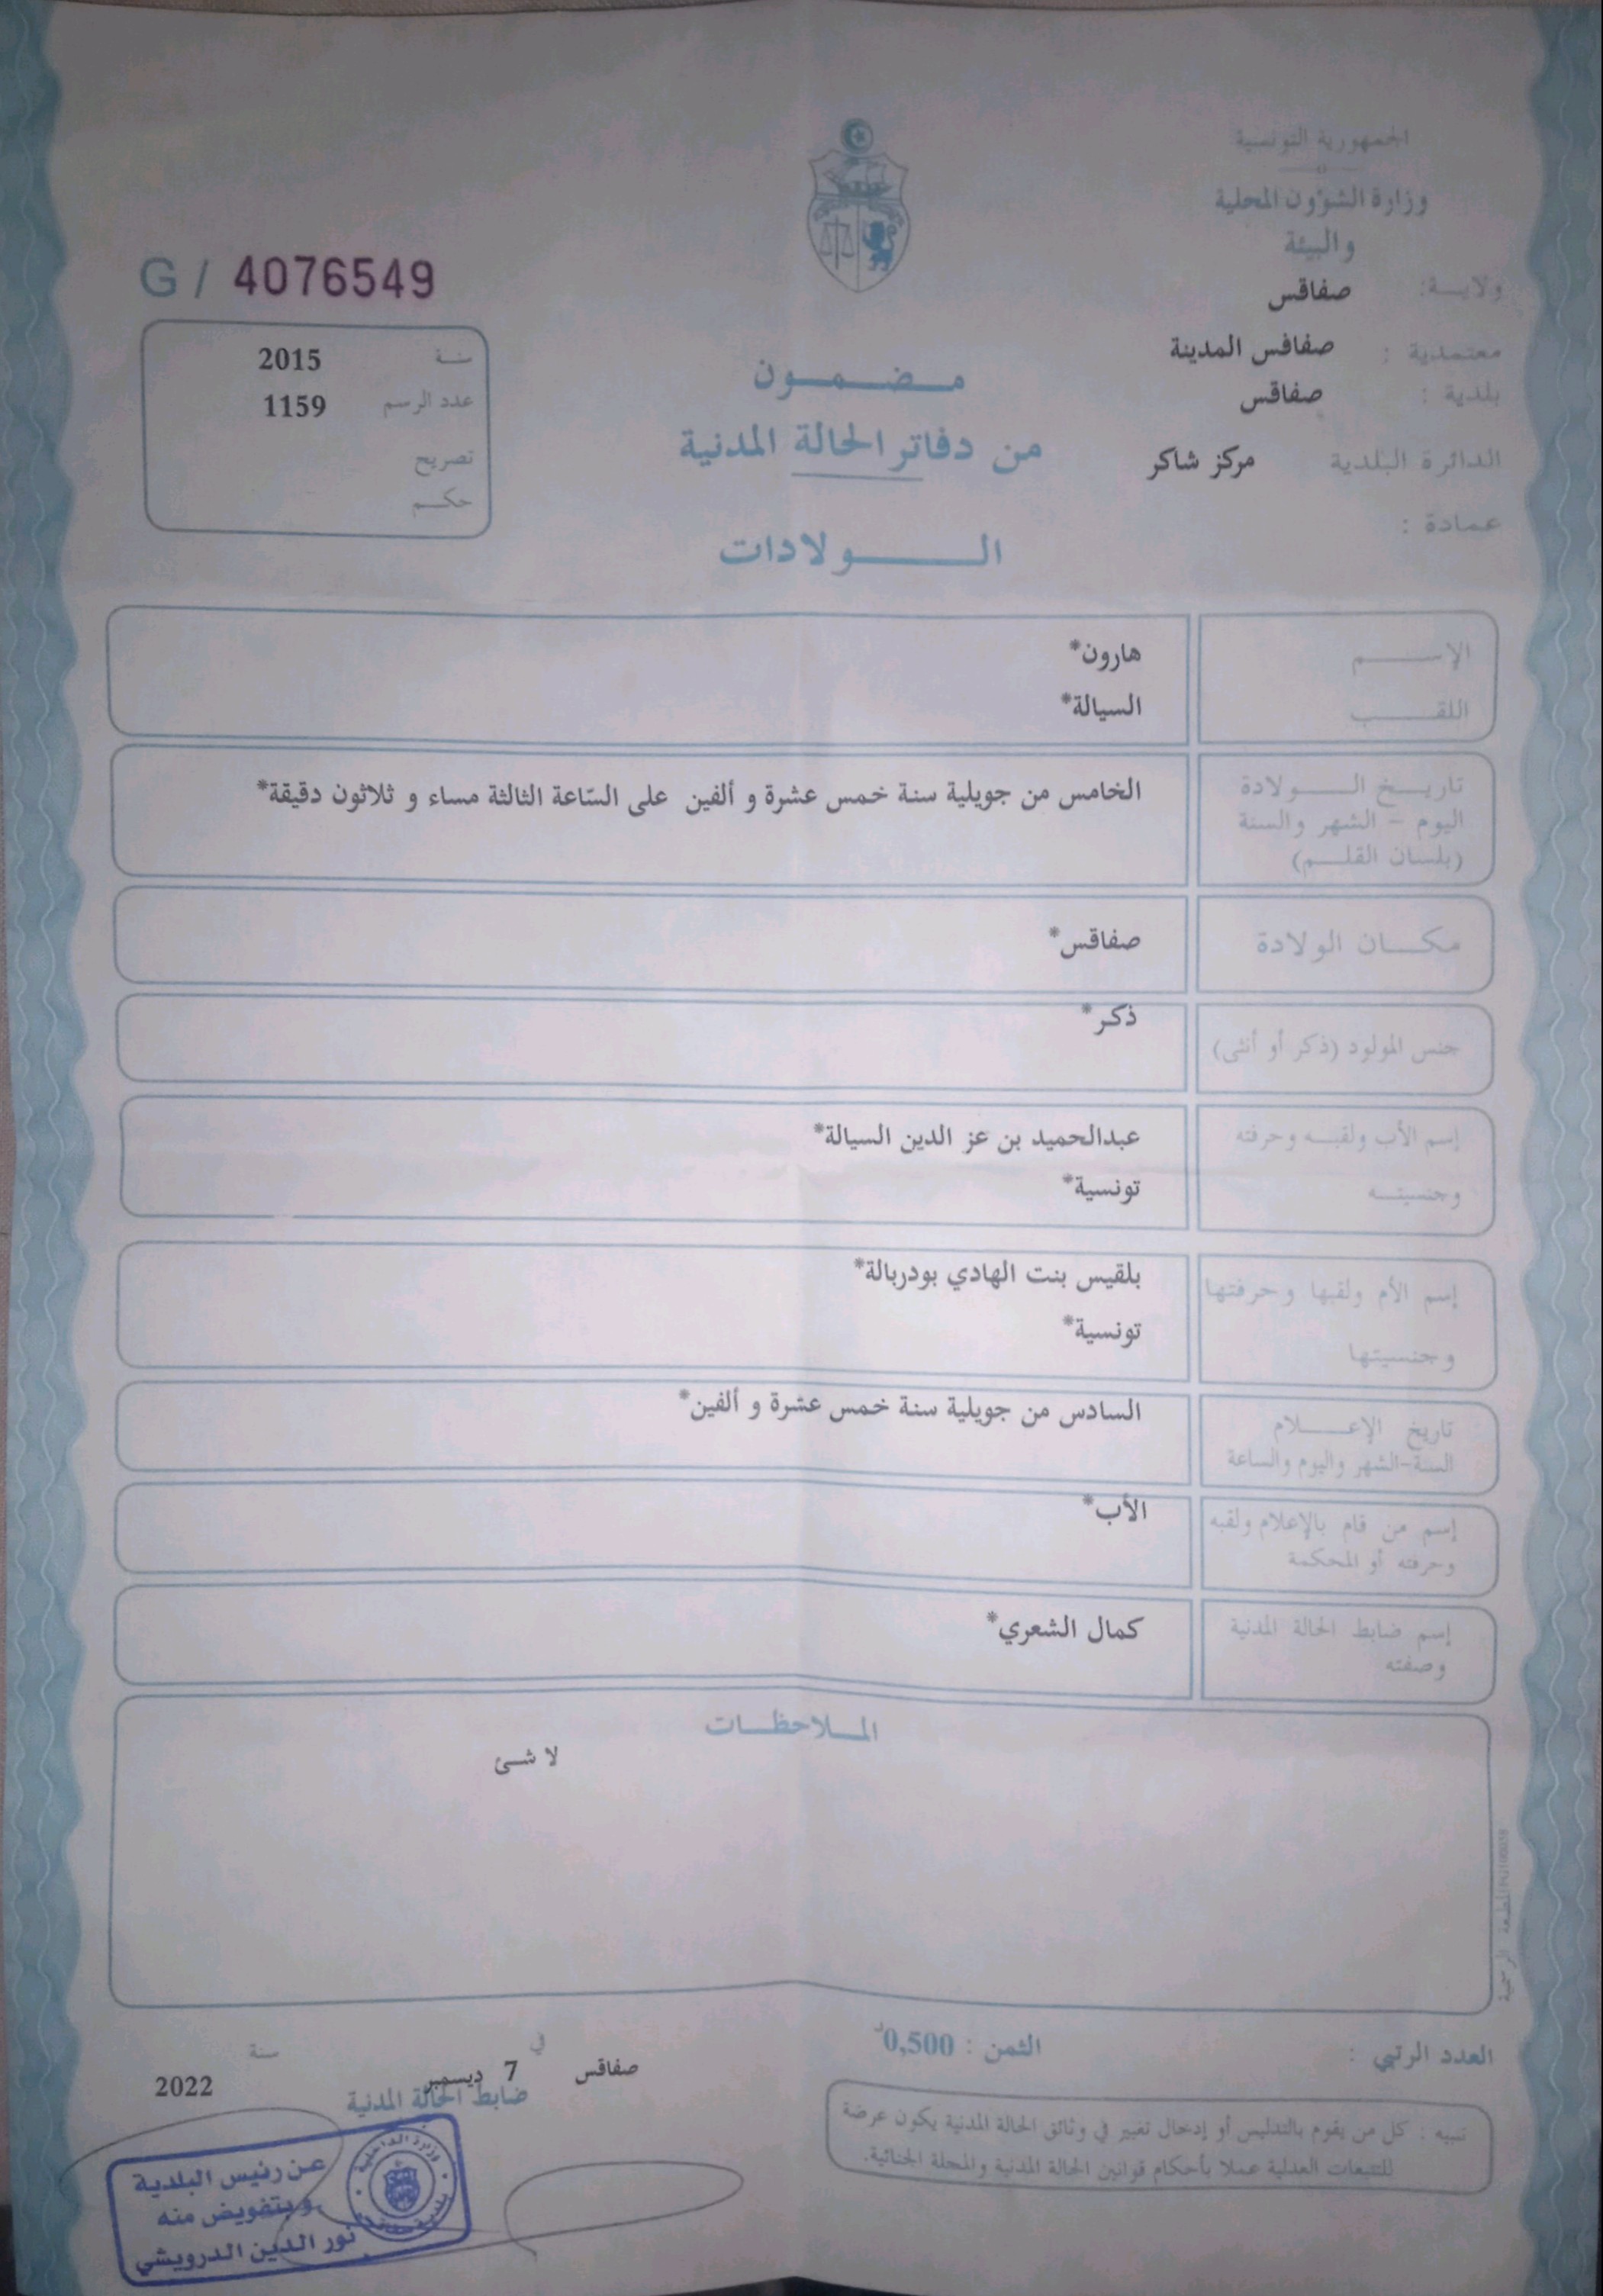 الجمهورية التونسية
وزارة الشؤون المحلية
والبيئة
ولايـــة: صفاقس
معتمدية : صفاقس المدينة
بلدية : صفاقس
الدائرة البلدية مركز شاكر
عمادة :
G / 4076549
سنـة 2015
عدد الرسم 1159
تصريح
حكــم
مـــضـــمـــون
من دفاتر الحالة المدنية
الـــــــولادات
الإســــــم هارون*
اللقــــــب السيالة*
تاريـــخ الـــــولادة
اليوم - الشهر والسنة
(بلسان القلـــم)
الخامس من جويلية سنة خمس عشرة و ألفين على السّاعة الثالثة مساء و ثلاثون دقيقة*
مكـــان الولادة صفاقس*
جنس المولود (ذكر أو أنثى) ذكر*
إسم الأب ولقبــه وحرفته عبدالحميد بن عز الدين السيالة*
وجنسيتــه تونسية*
إسم الأم ولقبها وحرفتها بلقيس بنت الهادي بودربالة*
وجنسيتها تونسية*
تاريخ الإعــــلام
السنة-الشهر واليوم والساعة
السادس من جويلية سنة خمس عشرة و ألفين*
إسم من قام بالإعلام ولقبه
وحرفته أو المحكمة
الأب*
إسم ضابط الحالة المدنية
وصفته
كمال الشعري*
المــلاحظــات
لا شئ
المطبعة الرسمية
العدد الرتبي :
الثمن : 0,500د
صفاقس في 7 ديسمبر سنة 2022
ضابط الحالة المدنية
تنبيه : كل من يقوم بالتدليس أو إدخال تغيير في وثائق الحالة المدنية يكون عرضة
للتتبعات العدلية عملا بأحكام قوانين الحالة المدنية والمجلة الجنائية.
عن رئيس البلدية
وبتفويض منه
نور الدين الدرويشي
وزارة الداخلية